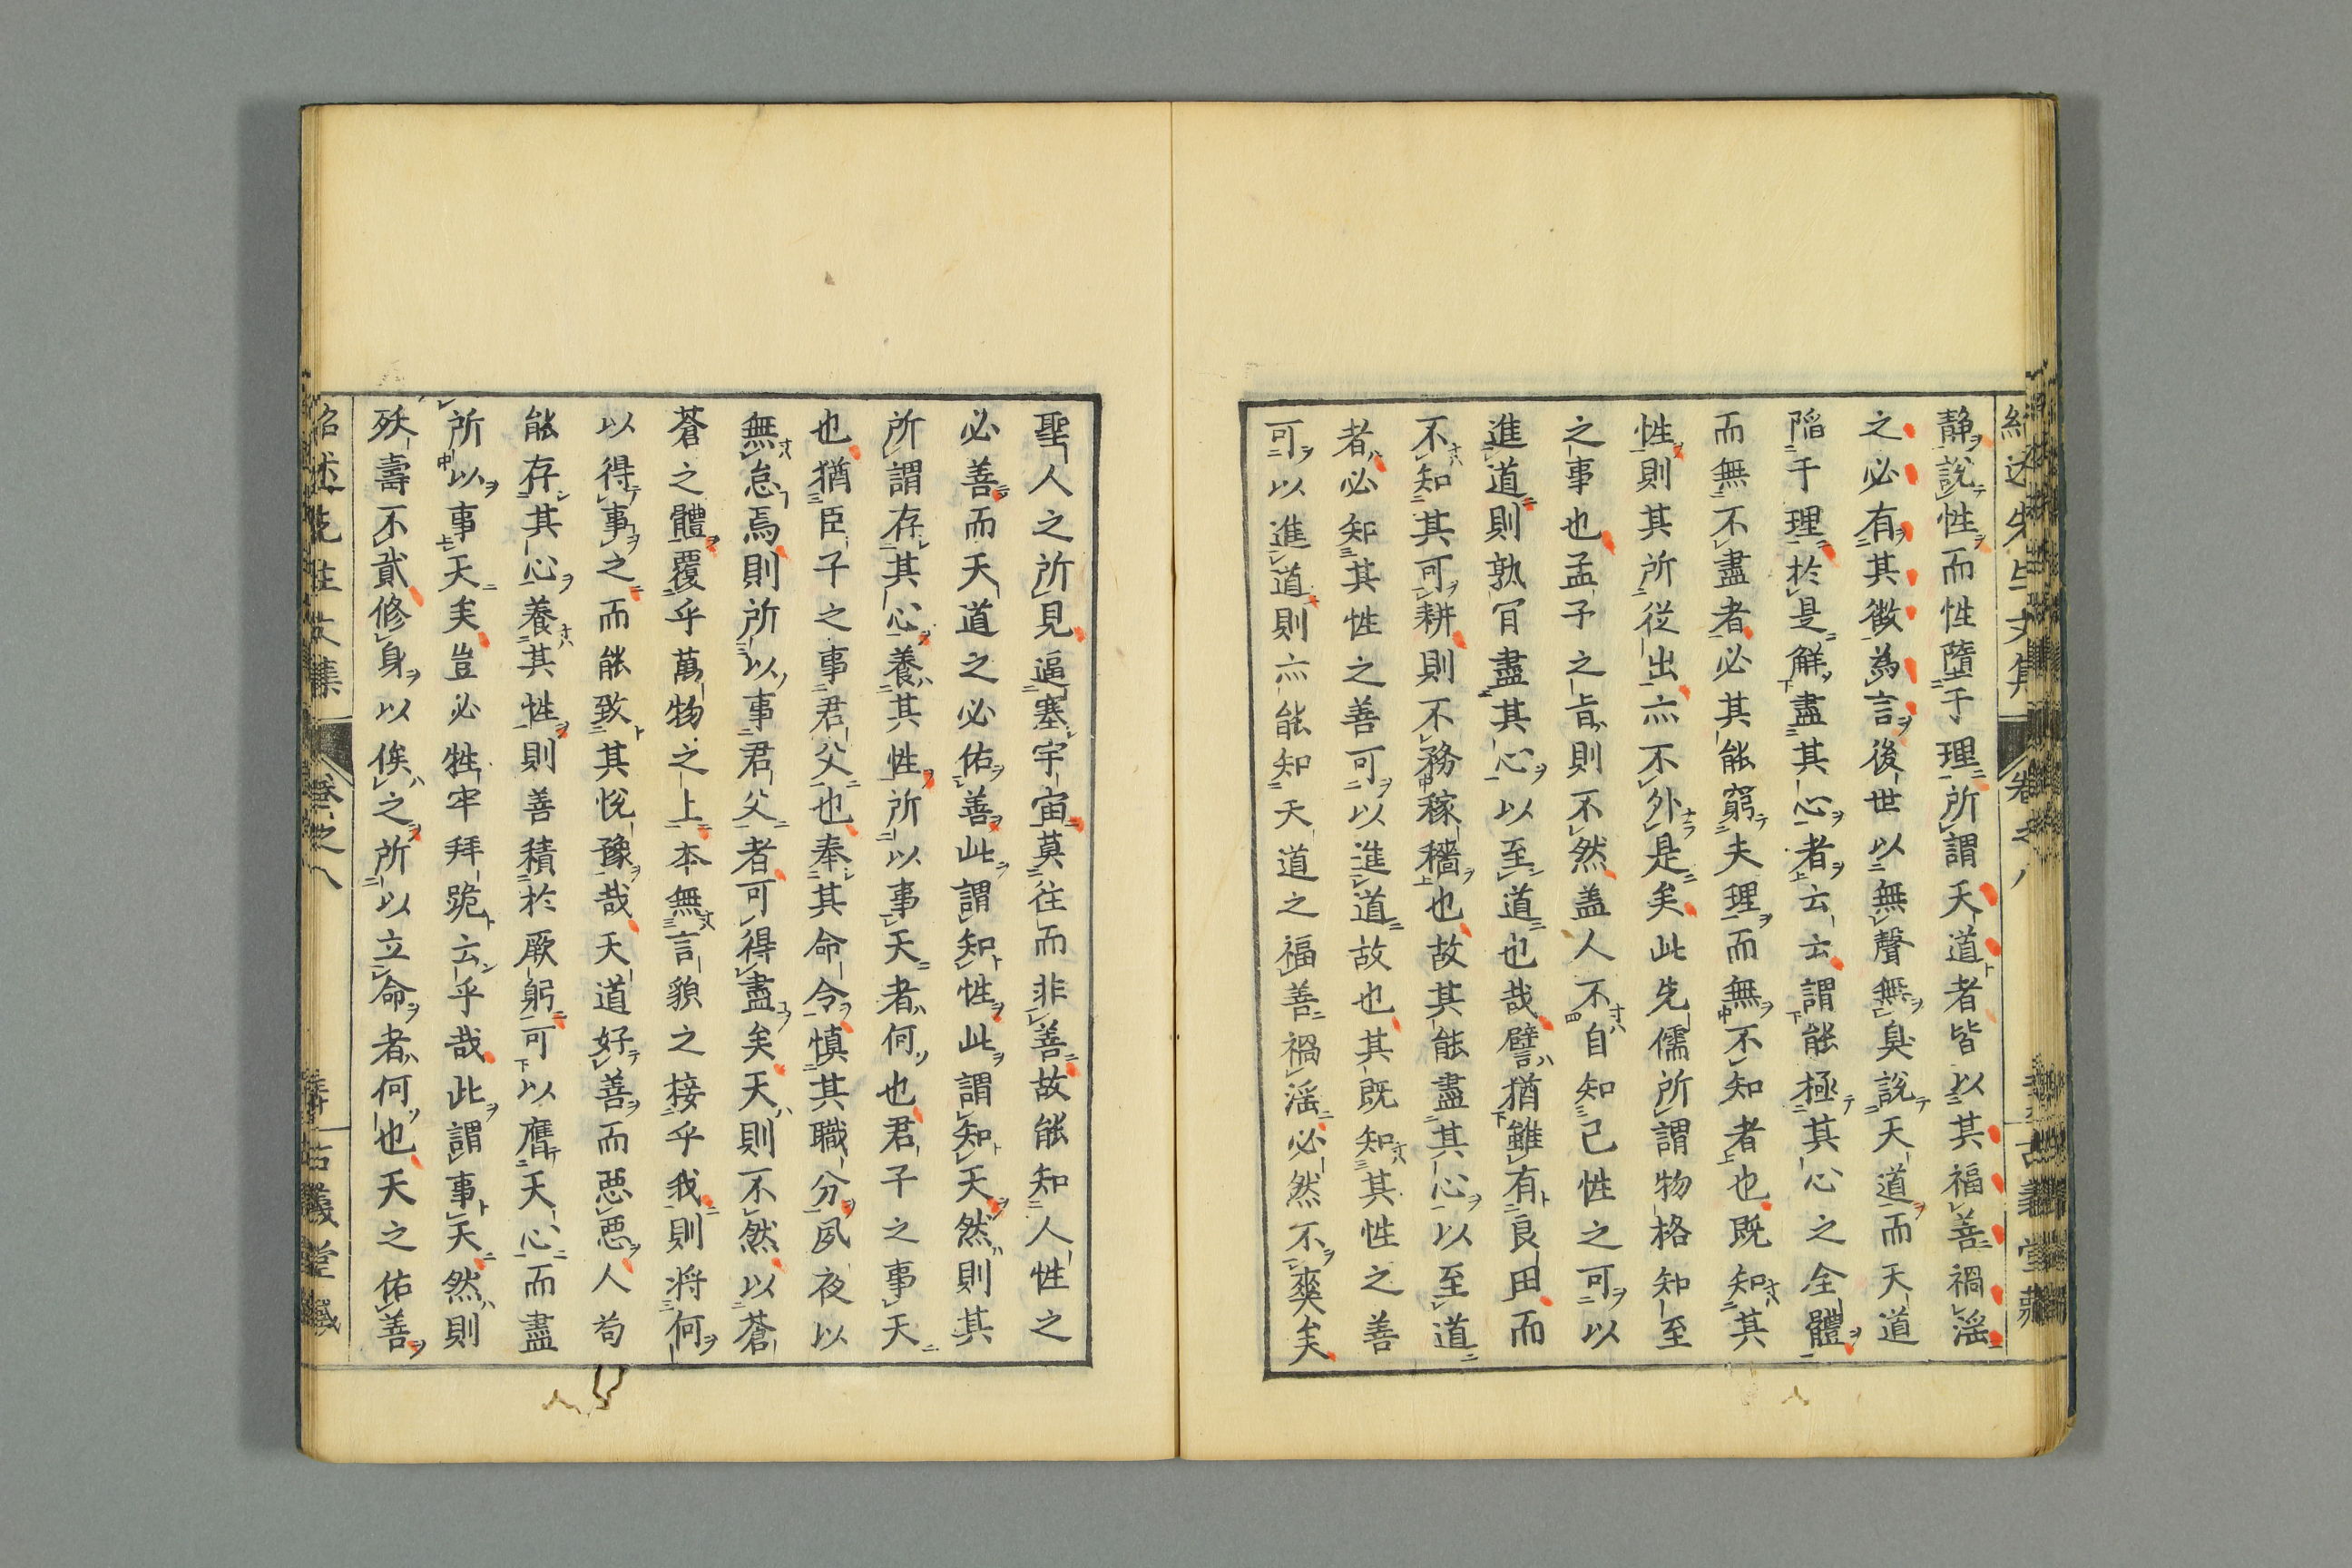 紹述先生文集
卷之八
古義堂藏
静說性而性墮于理所謂天道者皆以其福善禍淫
之必有其徵為言後世以無聲無臭說天道而天道
陷于理於是解盡其心者云云謂能極其心之全體
而無不盡者必其能窮夫理而無不知者也既知其
性則其所從出亦不外是矣此先儒所謂物格知至
之事也孟子之旨則不然盖人不自知己性之可以
進道則孰肎盡其心以至道也哉譬猶雖有良田而
不知其可耕則不務稼穡也故其能盡其心以至道
者必知其性之善可以進道故也其既知其性之善
可以進道則亦能知天道之福善禍淫必然不爽矣
聖人之所見逼塞宇宙莫徃而非善故能知人性之
必善而天道之必佑善此謂知性此謂知天然則其
所謂存其心養其性所以事天者何也君子之事天
也猶臣子之事君父也奉其命令慎其職分夙夜以
無怠焉則所以事君父者可得盡矣天則不然以蒼
蒼之體覆乎萬物之上本無言貌之接乎我則将何
以得事之而能致其悅豫哉天道好善而惡惡人苟
能存其心養其性則善積於厥躬可以膺天心而盡
所以事天矣豈必牲牢拜跪云乎哉此謂事天然則
殀壽不貳修身以俟之所以立命者何也天之佑善
紹述先生文集
卷之八
古義堂藏